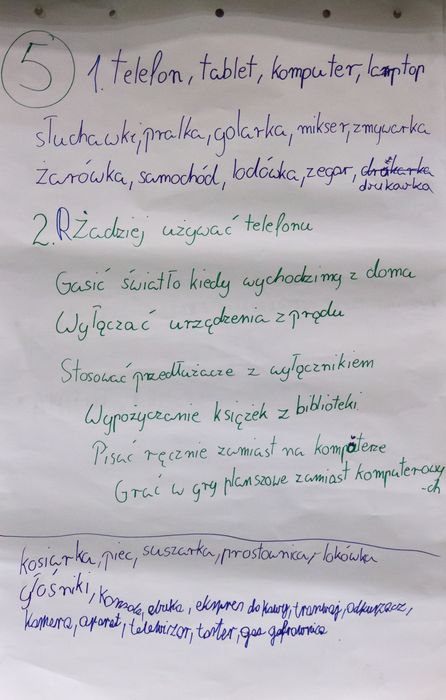 5
1. telefon, tablet, komputer, laptop
słuchawki, pralka, golarka, mikser, zmywarka
żarówka, samochód, lodówka, zegar, drókarka
drukarka
2. RŻadziej używać telefonu
Gasić światło kiedy wychodzimy z doma
Wyłączać urządzenia z prądu
Stosować przedłużacze z wyłącznikiem
Wypożyczanie książek z biblioteki
Pisać ręcznie zamiast na komputerze
Grać w gry planszowe zamiast komputerowy
-ch
kosiarka, piec, suszarka, prostownica, lokówka
głośniki, konsola, ekspres do kawy, tramwaj, odkurzacz,
kamera, aparat, telewizor, toster, gofrownica